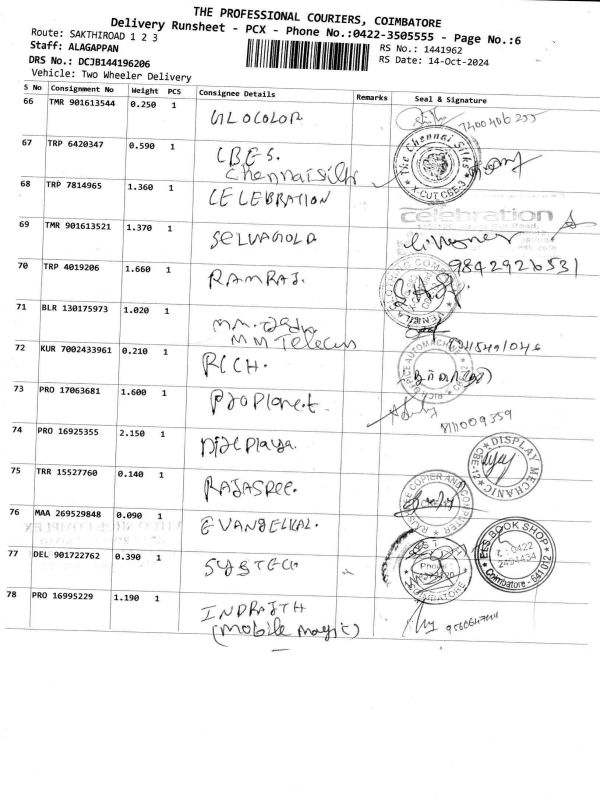 THE PROFESSIONAL COURIERS, COIMBATORE
Delivery Runsheet - PCX - Phone No.:0422-3505555 - Page No.:6
Route: SAKTHIROAD 1 2 3
RS No.: 1441962
Staff: ALAGAPPAN
RS Date: 14-Oct-2024
DRS No.: DCJB144196206
Vehicle: Two Wheeler Delivery
S No Consignment No Weight PCS Consignee Details Remarks Seal & Signature
66 TMR 901613544 0.250 1 GLOCOLOR
67 TRP 6420347 0.590 1 CBES.
Chennai Silks
The Chennai Silks
X-CUT CBE-3
68 TRP 7814965 1.360 1 CELEBRATION
celebration
69 TMR 901613521 1.370 1 SELVAGOLD
70 TRP 4019206 1.660 1 RAMRAJ.
9842926531
71 BLR 130175973 1.020 1
MM Telecus
72 KUR 7002433961 0.210 1 RICH.
73 PRO 17063681 1.600 1 Proplanet.
8110009359
74 PRO 16925355 2.150 1 Displaya.
DISPLAY MECHANIC
CBE-12
75 TRR 15527760 0.140 1 RAJASREE.
COPIER AND COMPUTER
76 MAA 269529848 0.090 1 EVANGELICAL.
EES BOOK SHOP
: 0422
2454434
Coimbatore - 641012
77 DEL 901722762 0.390 1 SYSTECH
Phone :
78 PRO 16995229 1.190 1 INDRAJITH
(mobile magic)